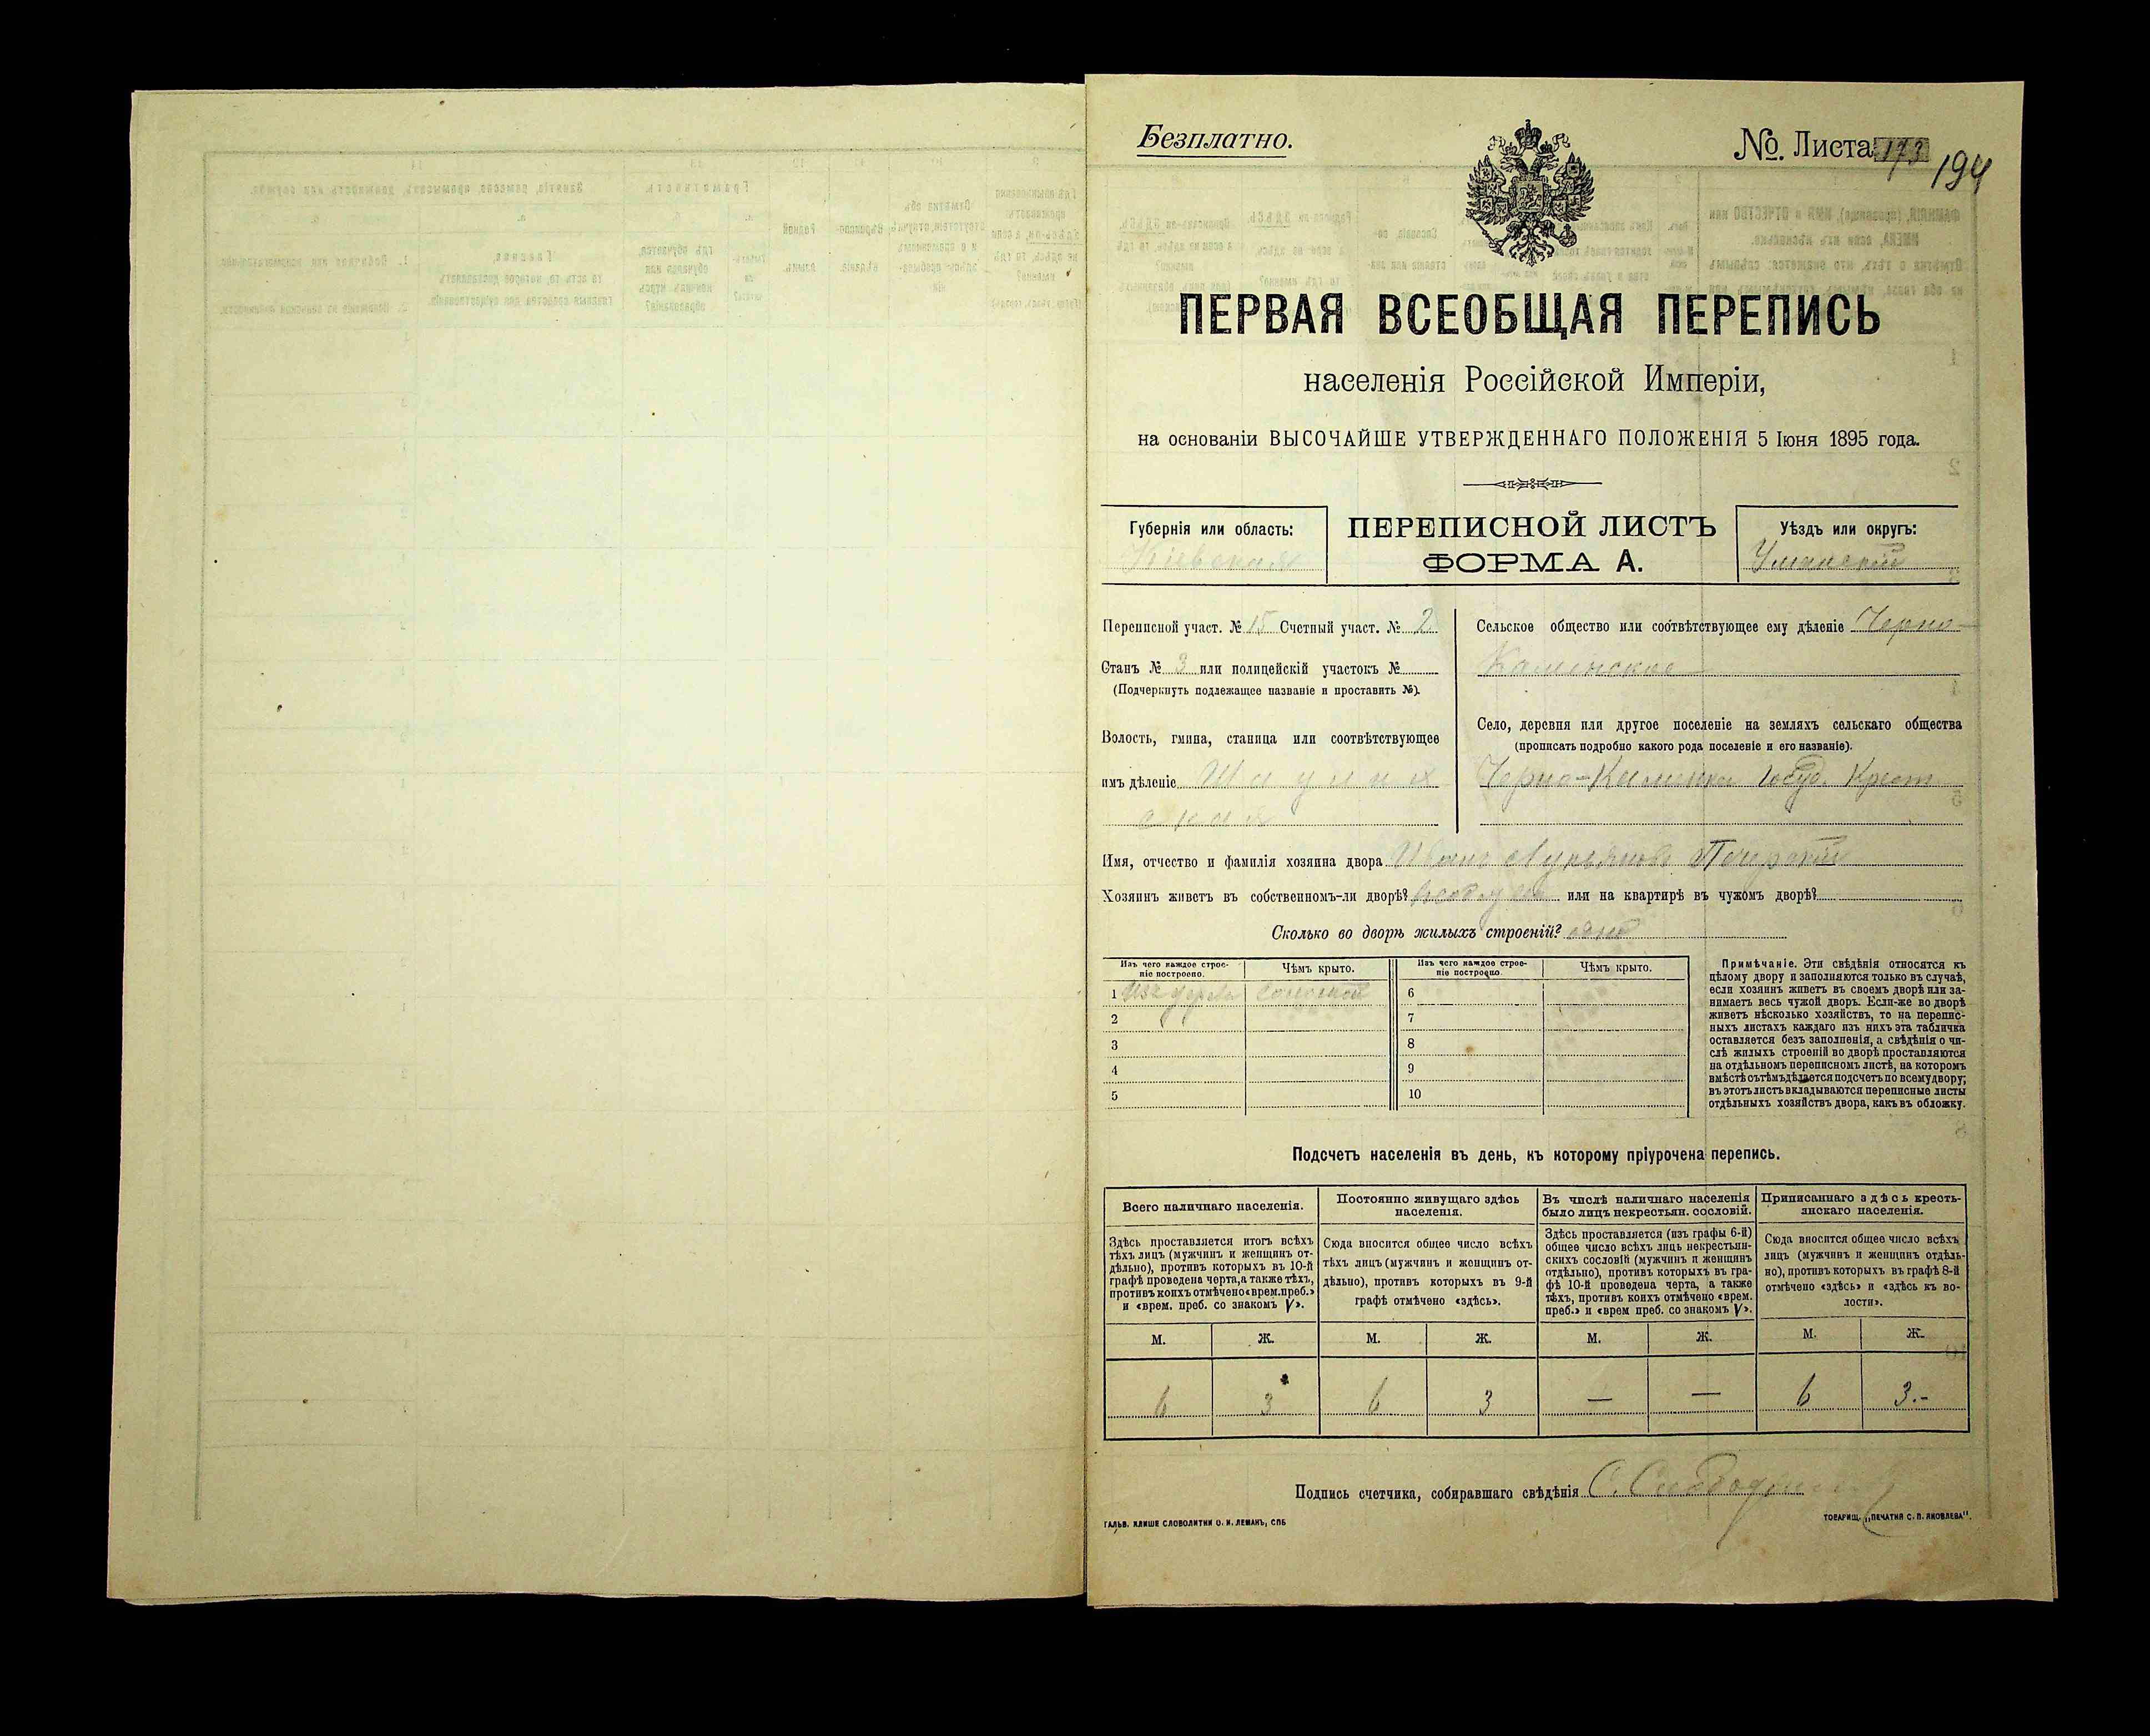 Безплатно.
№. Листа 173
194
ПЕРВАЯ ВСЕОБЩАЯ ПЕРЕПИСЬ
населенія Россійской Имперіи,
на основаніи ВЫСОЧАЙШЕ УТВЕРЖДЕННАГО ПОЛОЖЕНІЯ 5 Іюня 1895 года.
Губернія или область:
Кіевская
ПЕРЕПИСНОЙ ЛИСТЪ
ФОРМА А.
Уѣздъ или округъ:
Уманскій
Переписной участ. № 15 Счетный участ. № 2
Станъ № 3 или полицейскій участокъ №
(Подчеркнуть подлежащее названіе и проставить №).
Волость, гмина, станица или соотвѣтствующее
имъ дѣленіе
Сельское общество или соотвѣтствующее ему дѣленіе Черно-
Каменское
Село, деревня или другое поселеніе на земляхъ сельскаго общества
(прописать подробно какого рода поселеніе и его названіе).
Черно-Каменка Госуд. Крест
Имя, отчество и фамилія хозяина двора Иванъ Лукьяновъ Печерскій
Хозяинъ живетъ въ собственномъ-ли дворѣ? или на квартирѣ въ чужомъ дворѣ?
Сколько во дворѣ жилыхъ строеній? одно
Изъ чего каждое строе-
ніе построено.
Чѣмъ крыто.
Изъ чего каждое строе-
ніе построено.
Чѣмъ крыто.
1 Изъ дерева соломой
2
3
4
5
6
7
8
9
10
Примѣчаніе. Эти свѣдѣнія относятся къ
цѣлому двору и заполняются только въ случаѣ,
если хозяинъ живетъ въ своемъ дворѣ или за-
нимаетъ весь чужой дворъ. Если-же во дворѣ
живетъ нѣсколько хозяйствъ, то на перепис-
ныхъ листахъ каждаго изъ нихъ эта табличка
оставляется безъ заполненія, а свѣдѣнія о чи-
слѣ жилыхъ строеній во дворѣ проставляются
на отдѣльномъ переписномъ листѣ, на которомъ
вмѣстѣ съ тѣмъ дѣлается подсчетъ по всему двору;
въ этотъ листъ вкладываются переписные листы
отдѣльныхъ хозяйствъ двора, какъ въ обложку.
Подсчетъ населенія въ день, къ которому пріурочена перепись.
Всего наличнаго населенія.
Здѣсь проставляется итогъ всѣхъ
тѣхъ лицъ (мужчинъ и женщинъ от-
дѣльно), противъ которыхъ въ 10-й
графѣ проведена черта, а также тѣхъ,
противъ коихъ отмѣчено «врем. преб.»
и «врем. преб. со знакомъ V».
Постоянно живущаго здѣсь
населенія.
Сюда вносится общее число всѣхъ
тѣхъ лицъ (мужчинъ и женщинъ от-
дѣльно), противъ которыхъ въ 9-й
графѣ отмѣчено «здѣсь».
Въ числѣ наличнаго населенія
было лицъ некрестьян. сословій.
Здѣсь проставляется (изъ графы 6-й)
общее число всѣхъ лицъ некрестьян-
скихъ сословій (мужчинъ и женщинъ
отдѣльно), противъ которыхъ въ гра-
фѣ 10-й проведена черта, а также
тѣхъ, противъ коихъ отмѣчено «врем.
преб.» и «врем преб. со знакомъ V».
Приписаннаго здѣсь кресть-
янскаго населенія.
Сюда вносится общее число всѣхъ
лицъ (мужчинъ и женщинъ отдѣль-
но), противъ которыхъ въ графѣ 8-й
отмѣчено «здѣсь» и «здѣсь къ во-
лости».
М. Ж. М. Ж. М. Ж. М. Ж.
6 3 6 3 — — 6 3.-
Подпись счетчика, собиравшаго свѣдѣнія
ГАЛЬВ. КЛИШЕ СЛОВОЛИТНИ О. И. ЛЕМАНЪ, СПБ
ТОВАРИЩ. „ПЕЧАТНЯ С. П. ЯКОВЛЕВА".